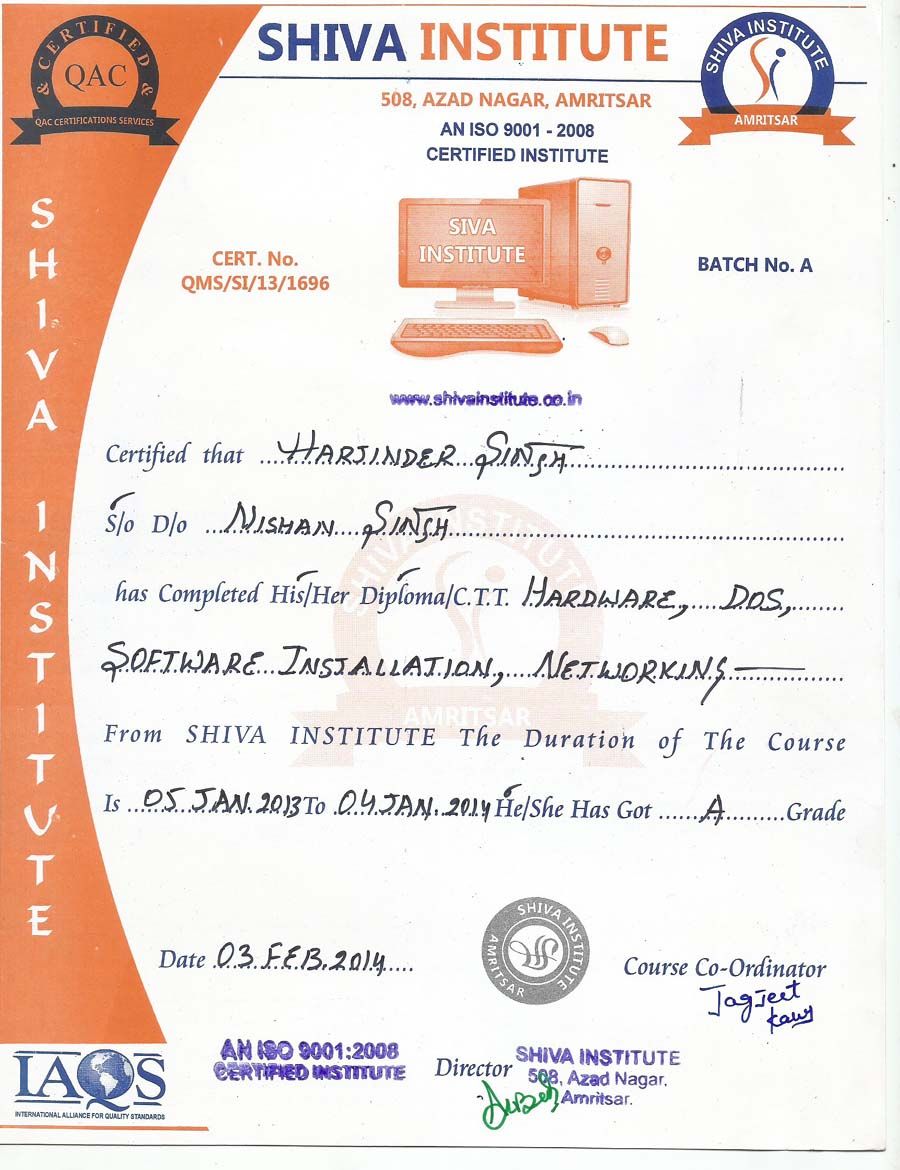 & CERTIFIED &
QAC
QAC CERTIFICATIONS SERVICES
SHIVA INSTITUTE
508, AZAD NAGAR, AMRITSAR
AN ISO 9001 - 2008
CERTIFIED INSTITUTE
SHIVA INSTITUTE
AMRITSAR
SHIVA INSTITUTE
SIVA
INSTITUTE
CERT. No.
QMS/SI/13/1696
BATCH No. A
www.shivainstitute.co.in
Certified that HARJINDER SINGH
S/o D/o NISHAN SINGH
has Completed His/Her Diploma/C.T.T. HARDWARE, DOS,
SOFTWARE INSTALLATION, NETWORKING
From SHIVA INSTITUTE The Duration of The Course
Is 05 JAN. 2013 To 04 JAN. 2014 He/She Has Got A Grade
SHIVA INSTITUTE
AMRITSAR
Date 03 FEB. 2014
SHIVA INSTITUTE
AMRITSAR
Course Co-Ordinator
Jagjeet
Kaur
IAQS
INTERNATIONAL ALLIANCE FOR QUALITY STANDARDS
AN ISO 9001:2008
CERTIFIED INSTITUTE
Director
SHIVA INSTITUTE
508, Azad Nagar,
Amritsar.